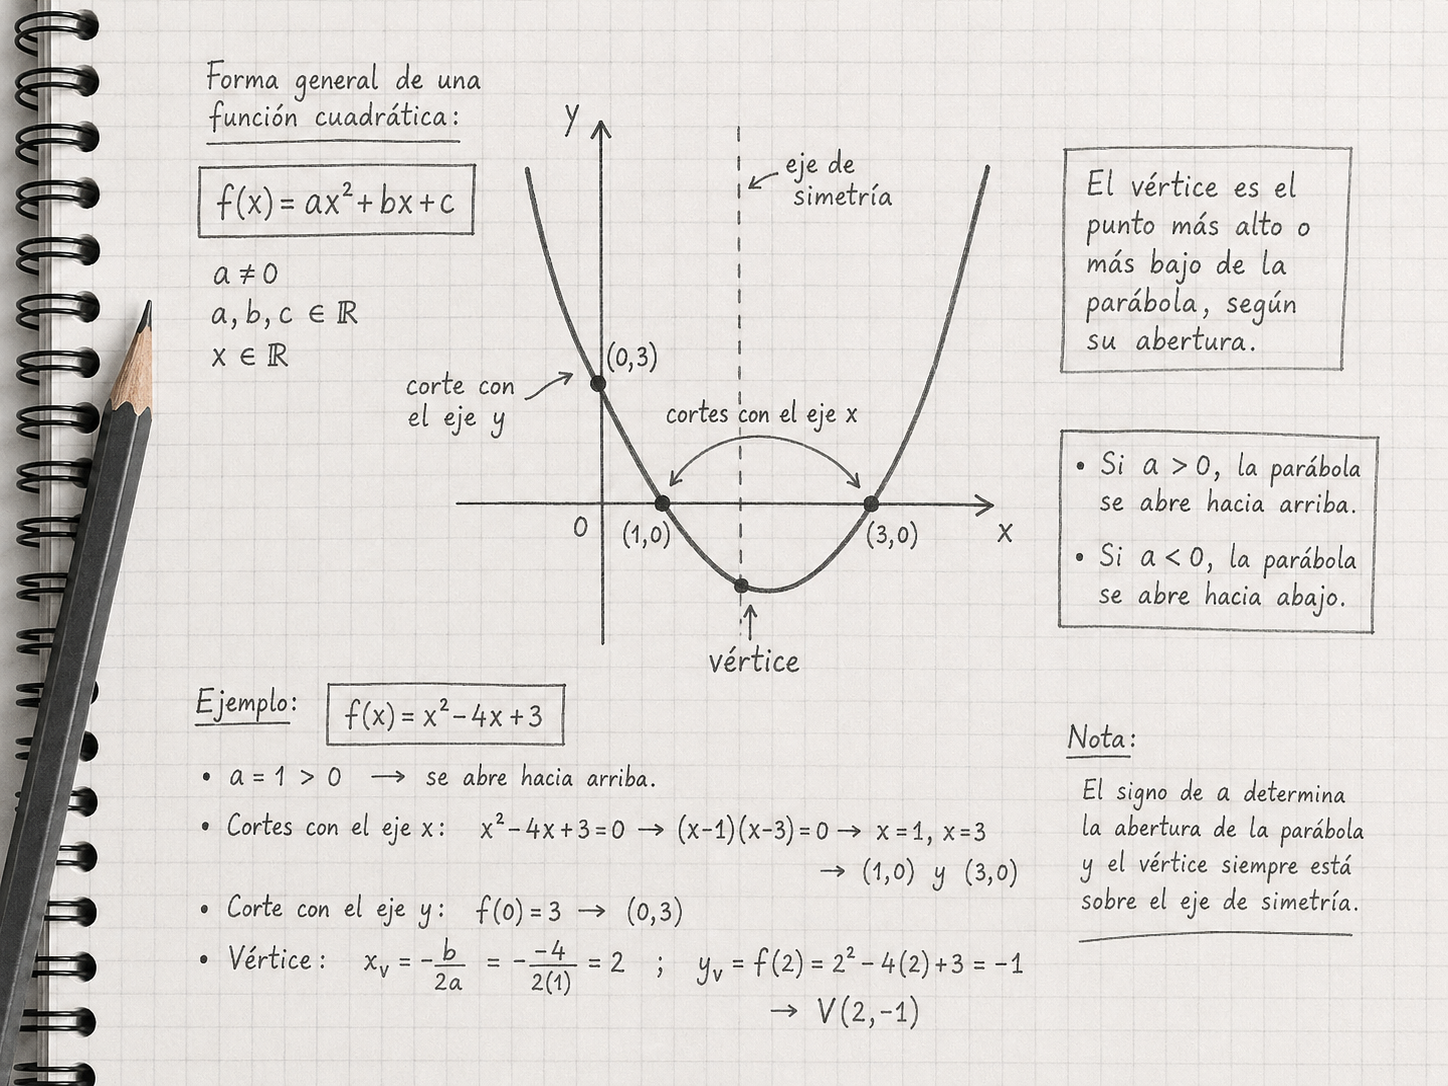 Forma general de una
función cuadrática:
f(x) = ax²+bx+c
a ≠ 0
a, b, c ∈ ℝ
x ∈ ℝ
y
eje de
simetría
(0,3)
corte con
el eje y
cortes con el eje x
0
(1,0)
(3,0)
x
vértice
El vértice es el
punto más alto o
más bajo de la
parábola, según
su abertura.
• Si a > 0, la parábola
se abre hacia arriba.
• Si a < 0, la parábola
se abre hacia abajo.
Ejemplo: f(x) = x² - 4x + 3
• a = 1 > 0 → se abre hacia arriba.
• Cortes con el eje x: x² - 4x + 3 = 0 → (x-1)(x-3) = 0 → x = 1, x = 3
→ (1,0) y (3,0)
• Corte con el eje y: f(0) = 3 → (0,3)
• Vértice: xᵥ = -b/2a = - -4/2(1) = 2 ; yᵥ = f(2) = 2² - 4(2) + 3 = -1
→ V(2,-1)
Nota:
El signo de a determina
la abertura de la parábola
y el vértice siempre está
sobre el eje de simetría.